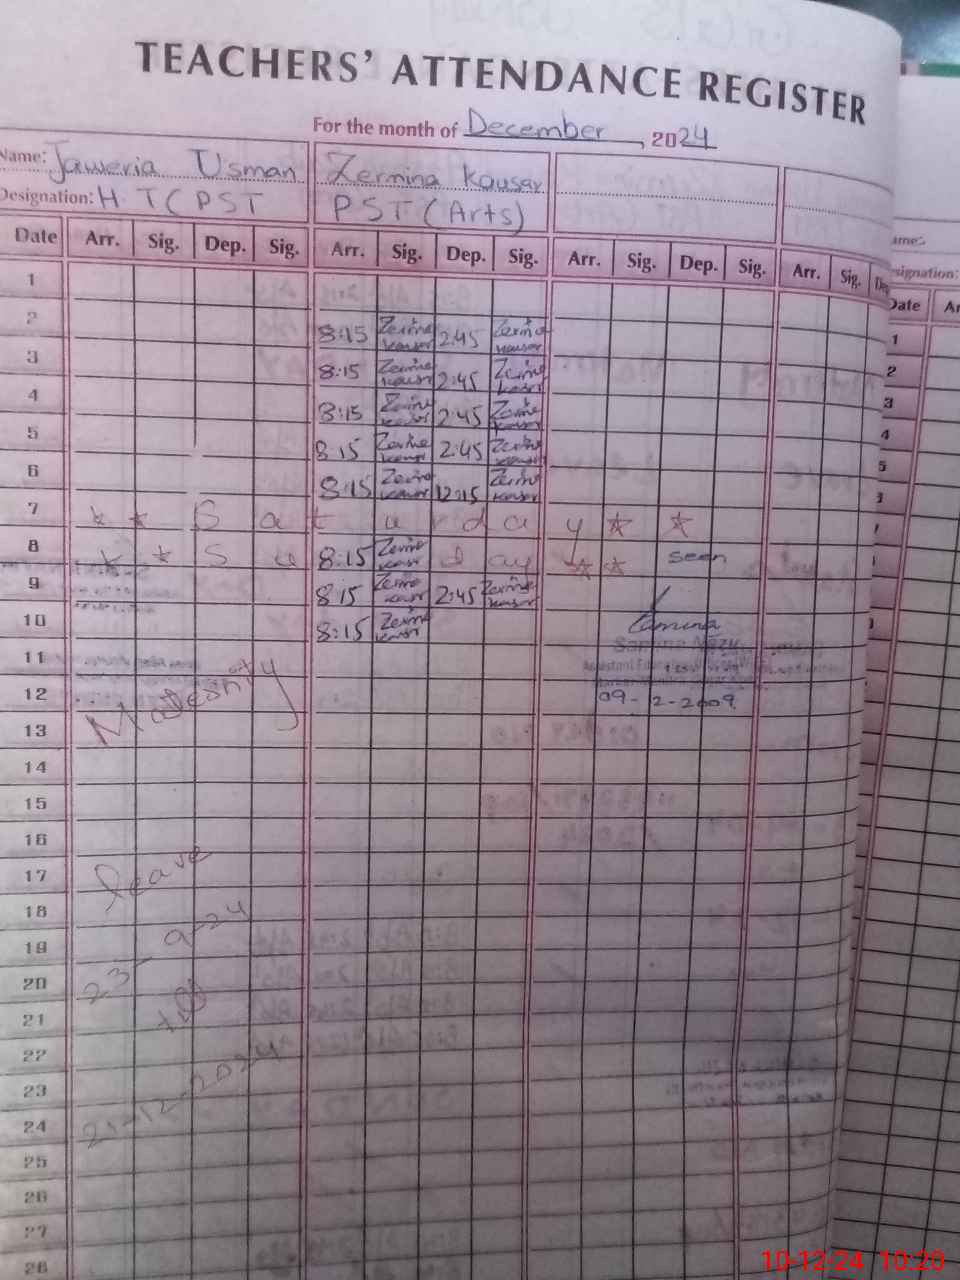 TEACHERS' ATTENDANCE REGISTER
For the month of December, 2024
Name: Jaweria Usman Zermina Kousar
Designation: H.T( PST PST (Arts)
Date Arr. Sig. Dep. Sig. Arr. Sig. Dep. Sig. Arr. Sig. Dep. Sig. Arr. Sig. Dep
1
2 8:15 Zermina Kousar 2:45 Zermina Kousar
3 8:15 Zermina Kousar 2:45 Zermina Kousar
4 8:15 Zermina Kousar 2:45 Zermina Kousar
5 8:15 Zermina Kousar 2:45 Zermina Kousar
6 8:15 Zermina Kousar 12:15 Zermina Kousar
7 Saturday
8 Su 8:15 Zermina Kousar day seen
9 8:15 Zermina Kousar 2:45 Zermina Kousar
10 8:15 Zermina Kousar
11
12 Maternity
13
14
15
16
17 leave
18
19
20 23-9-24
21 till
22
23
24 21-12-2024
25
26
27
28
ame:
signation:
Date Ar
1
2
3
4
5
10-12-24 10:20